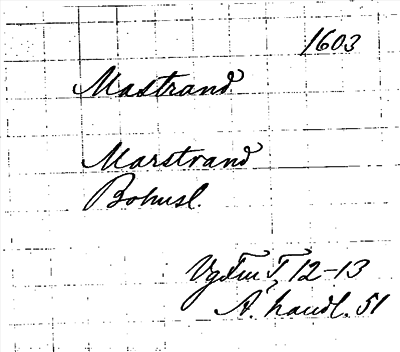 1603
Mastrand
Marstrand
Bohusl.
VgFmT 12-13
A. handl. 51